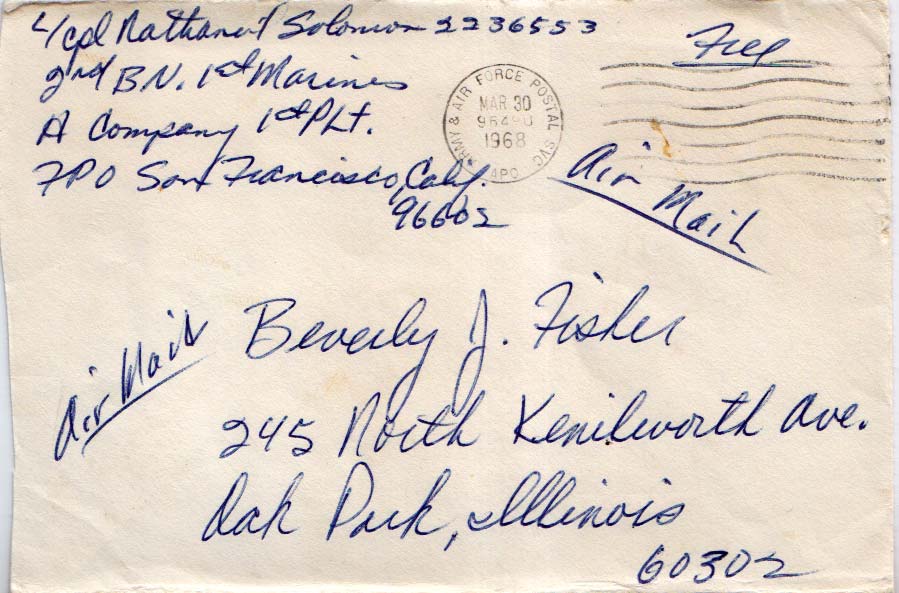 L/cpl Nathaniel Solomon 2236553
2nd BN. 1st Marines
A Company 1st Plt.
FPO San Francisco, Calif.
96602
Free
ARMY & AIR FORCE POSTAL SVC
MAR 30
1968
APO
Air Mail
Air Mail
Beverly J. Fisher
245 North Kenilworth Ave.
Oak Park, Illinois
60302